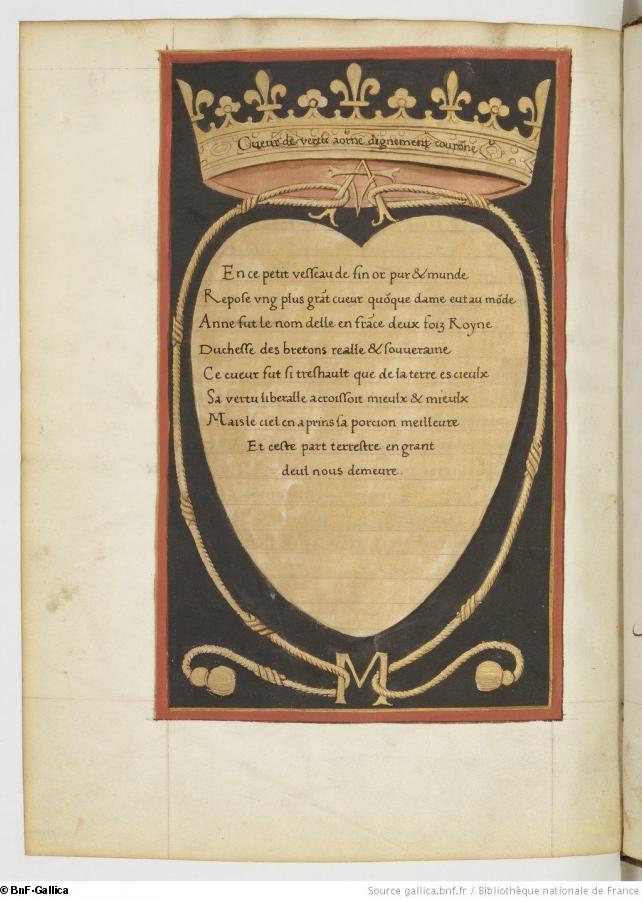 Cueur de vertu aorne dignement courōne
A
En ce petit vesseau de fin or pur & munde
Repose vng plus grāt cueur quōque dame eut au mōde
Anne fut le nom delle en frāce deux foiz Royne
Duchesse des bretons realle & souueraine
Ce cueur fut si treshault que de la terre es cieulx
Sa vertu liberalle acroissoit mieulx & mieulx
Mais le ciel en a prins sa porcion meilleure
Et ceste part terrestre en grant
deul nous demeure.
M
© BnF-Gallica
Source gallica.bnf.fr / Bibliothèque nationale de France